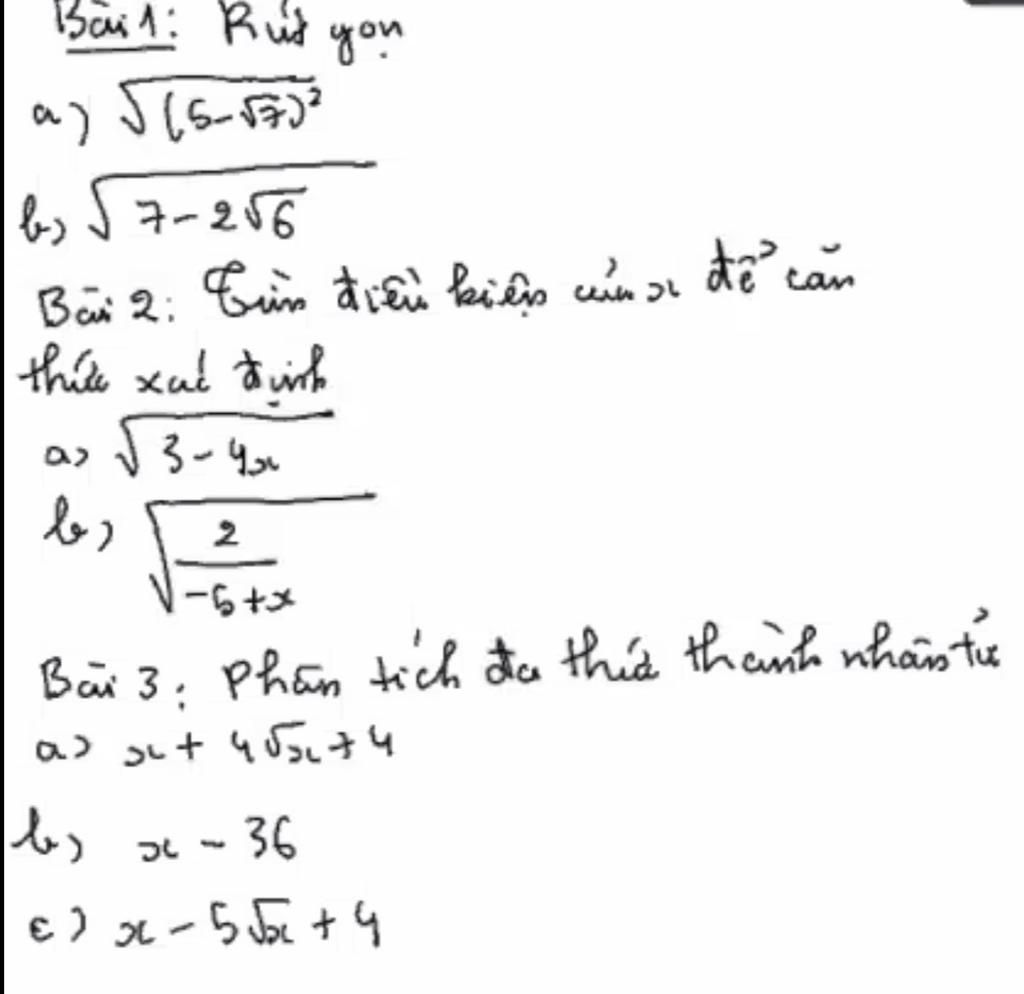 Bài 1: Rút gọn
a) √(5-√7)²
b) √7-2√6
Bài 2: Tìm điều kiện của x để căn
thức xác định
a) √3-4x
b) √2/-5+x
Bài 3: Phân tích đa thức thành nhân tử
a) x+4√x+4
b) x-36
c) x-5√x+4